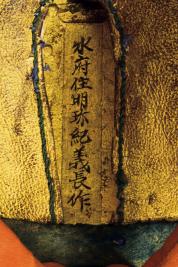 水府住明珎紀義長作